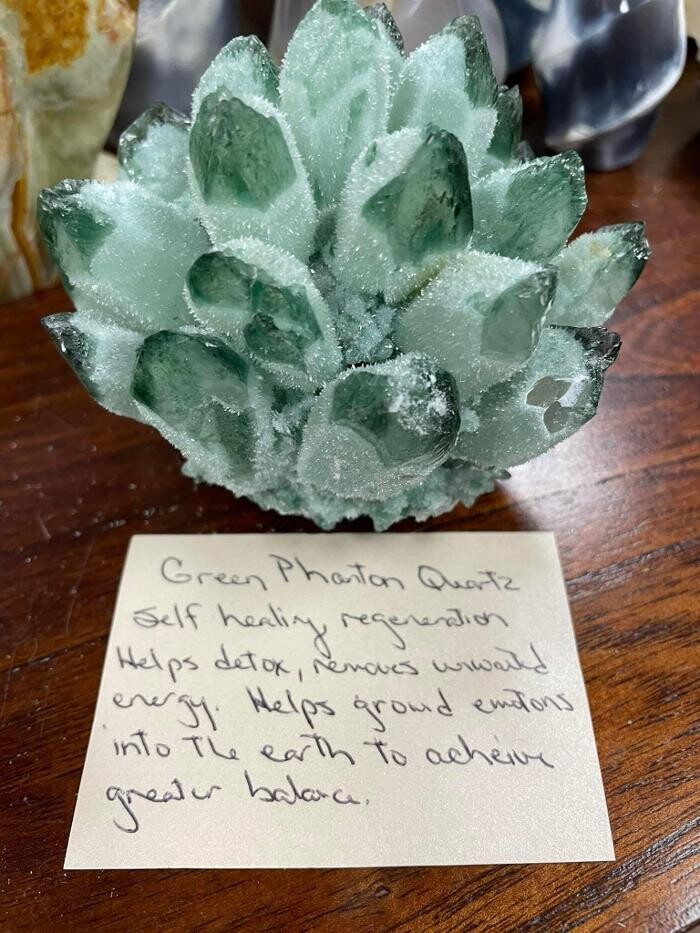 Green Phanton Quartz
Self healing, regeneration
Helps detox, removes unwanted
energy. Helps ground emotions
into the earth to acheive
greater balance.